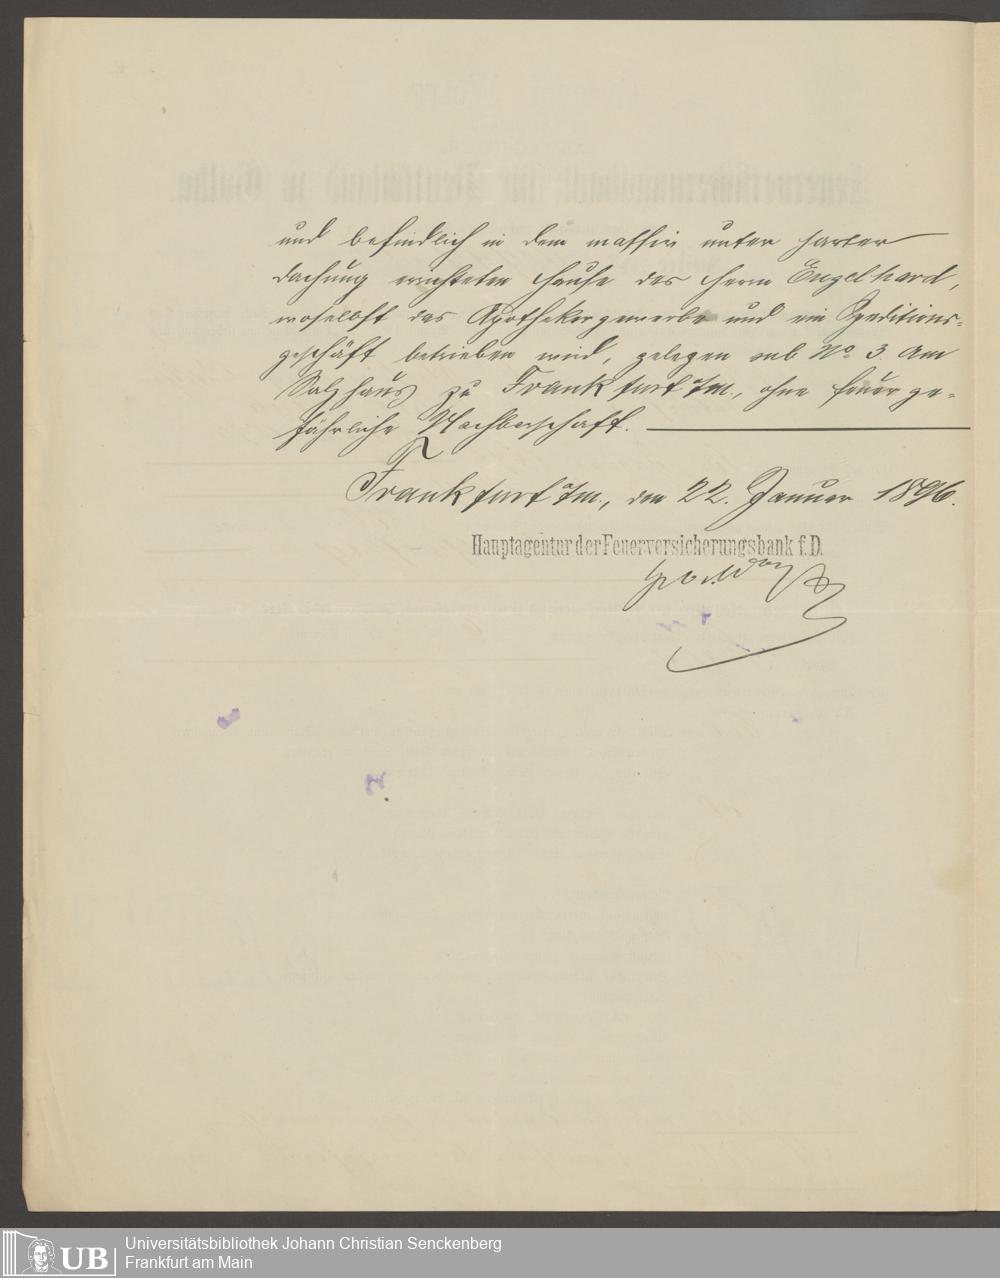 und befindlich in dem massiv unter harter
Dachung errichteten Hause des Herrn Engelhard,
woselbst das Apothekergewerbe und ein Speditions-
geschäft betrieben wird, gelegen sub No. 3 Am
Salzhaus zu Frankfurt a/m., ohne feuerge-
fährliche Nachbarschaft.
Frankfurt a/m., den 22. Januar 1896.
Hauptagentur der Feuerversicherungsbank f. D.
UB
Universitätsbibliothek Johann Christian Senckenberg
Frankfurt am Main